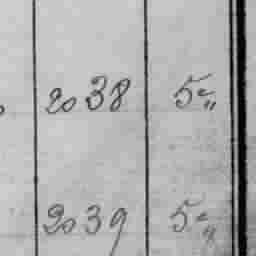 2038 5 "
2039 5 "